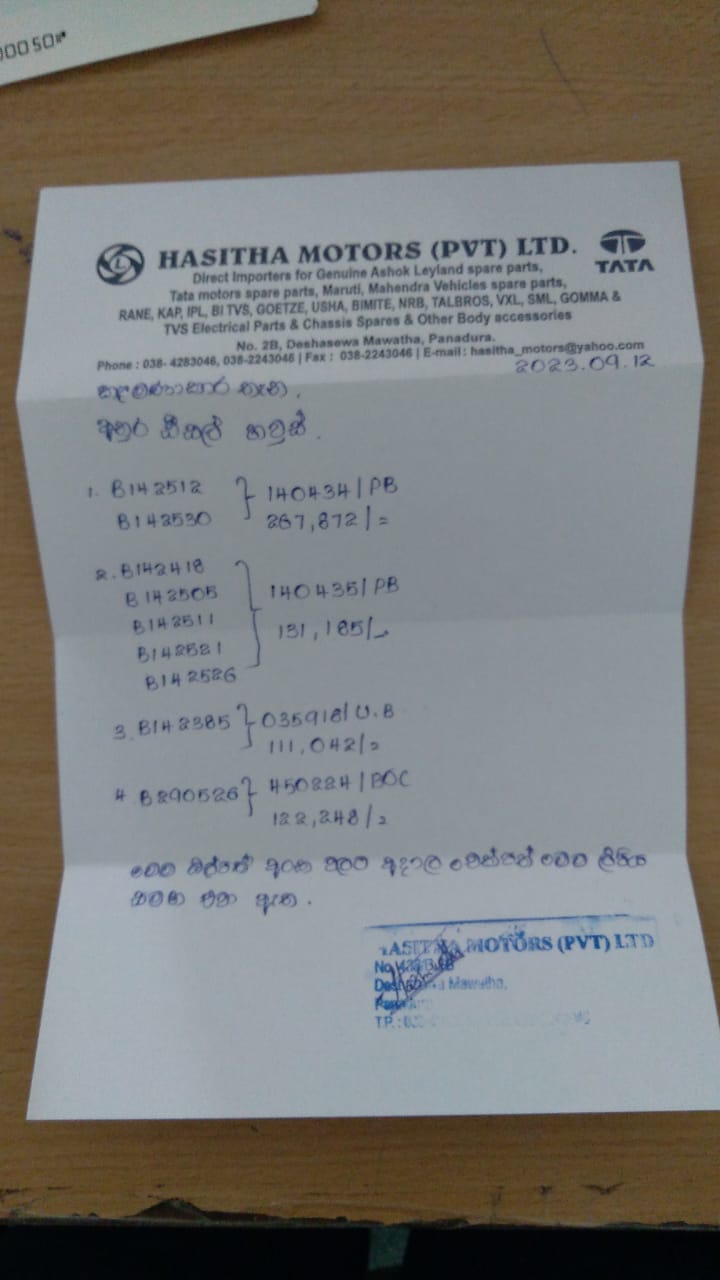 00050
HASITHA MOTORS (PVT) LTD.
TATA
Direct Importers for Genuine Ashok Leyland spare parts,
Tata motors spare parts, Maruti, Mahendra Vehicles spare parts,
RANE, KAP, IPL, BI TVS, GOETZE, USHA, BIMITE, NRB, TALBROS, VXL, SML, GOMMA &
TVS Electrical Parts & Chassis Spares & Other Body accessories
No. 2B, Deshasewa Mawatha, Panadura.
Phone : 038- 4283046, 038-2243046 | Fax : 038-2243046 | E-mail : hasitha_motors@yahoo.com
2023.09.12
කළමණාකාර තැන,
අතුර සීකල් හවුස්.
1. B142512 } 140434 / PB
B142530 267,872/=
2. B142418
B142505 } 140435/ PB
B142511 131,185/=
B142521
B142526
3. B142385 } 035918/ U.B
111,042/=
4. B290526 } 450224 / BOC
122,248/=
මෙම බිල්පත් අංක වලට අදාල චෙක්පත් මෙම ලිපිය
සමඟ එවා ඇත.
ASITHA MOTORS (PVT) LTD
Mawatha,
T.P. :